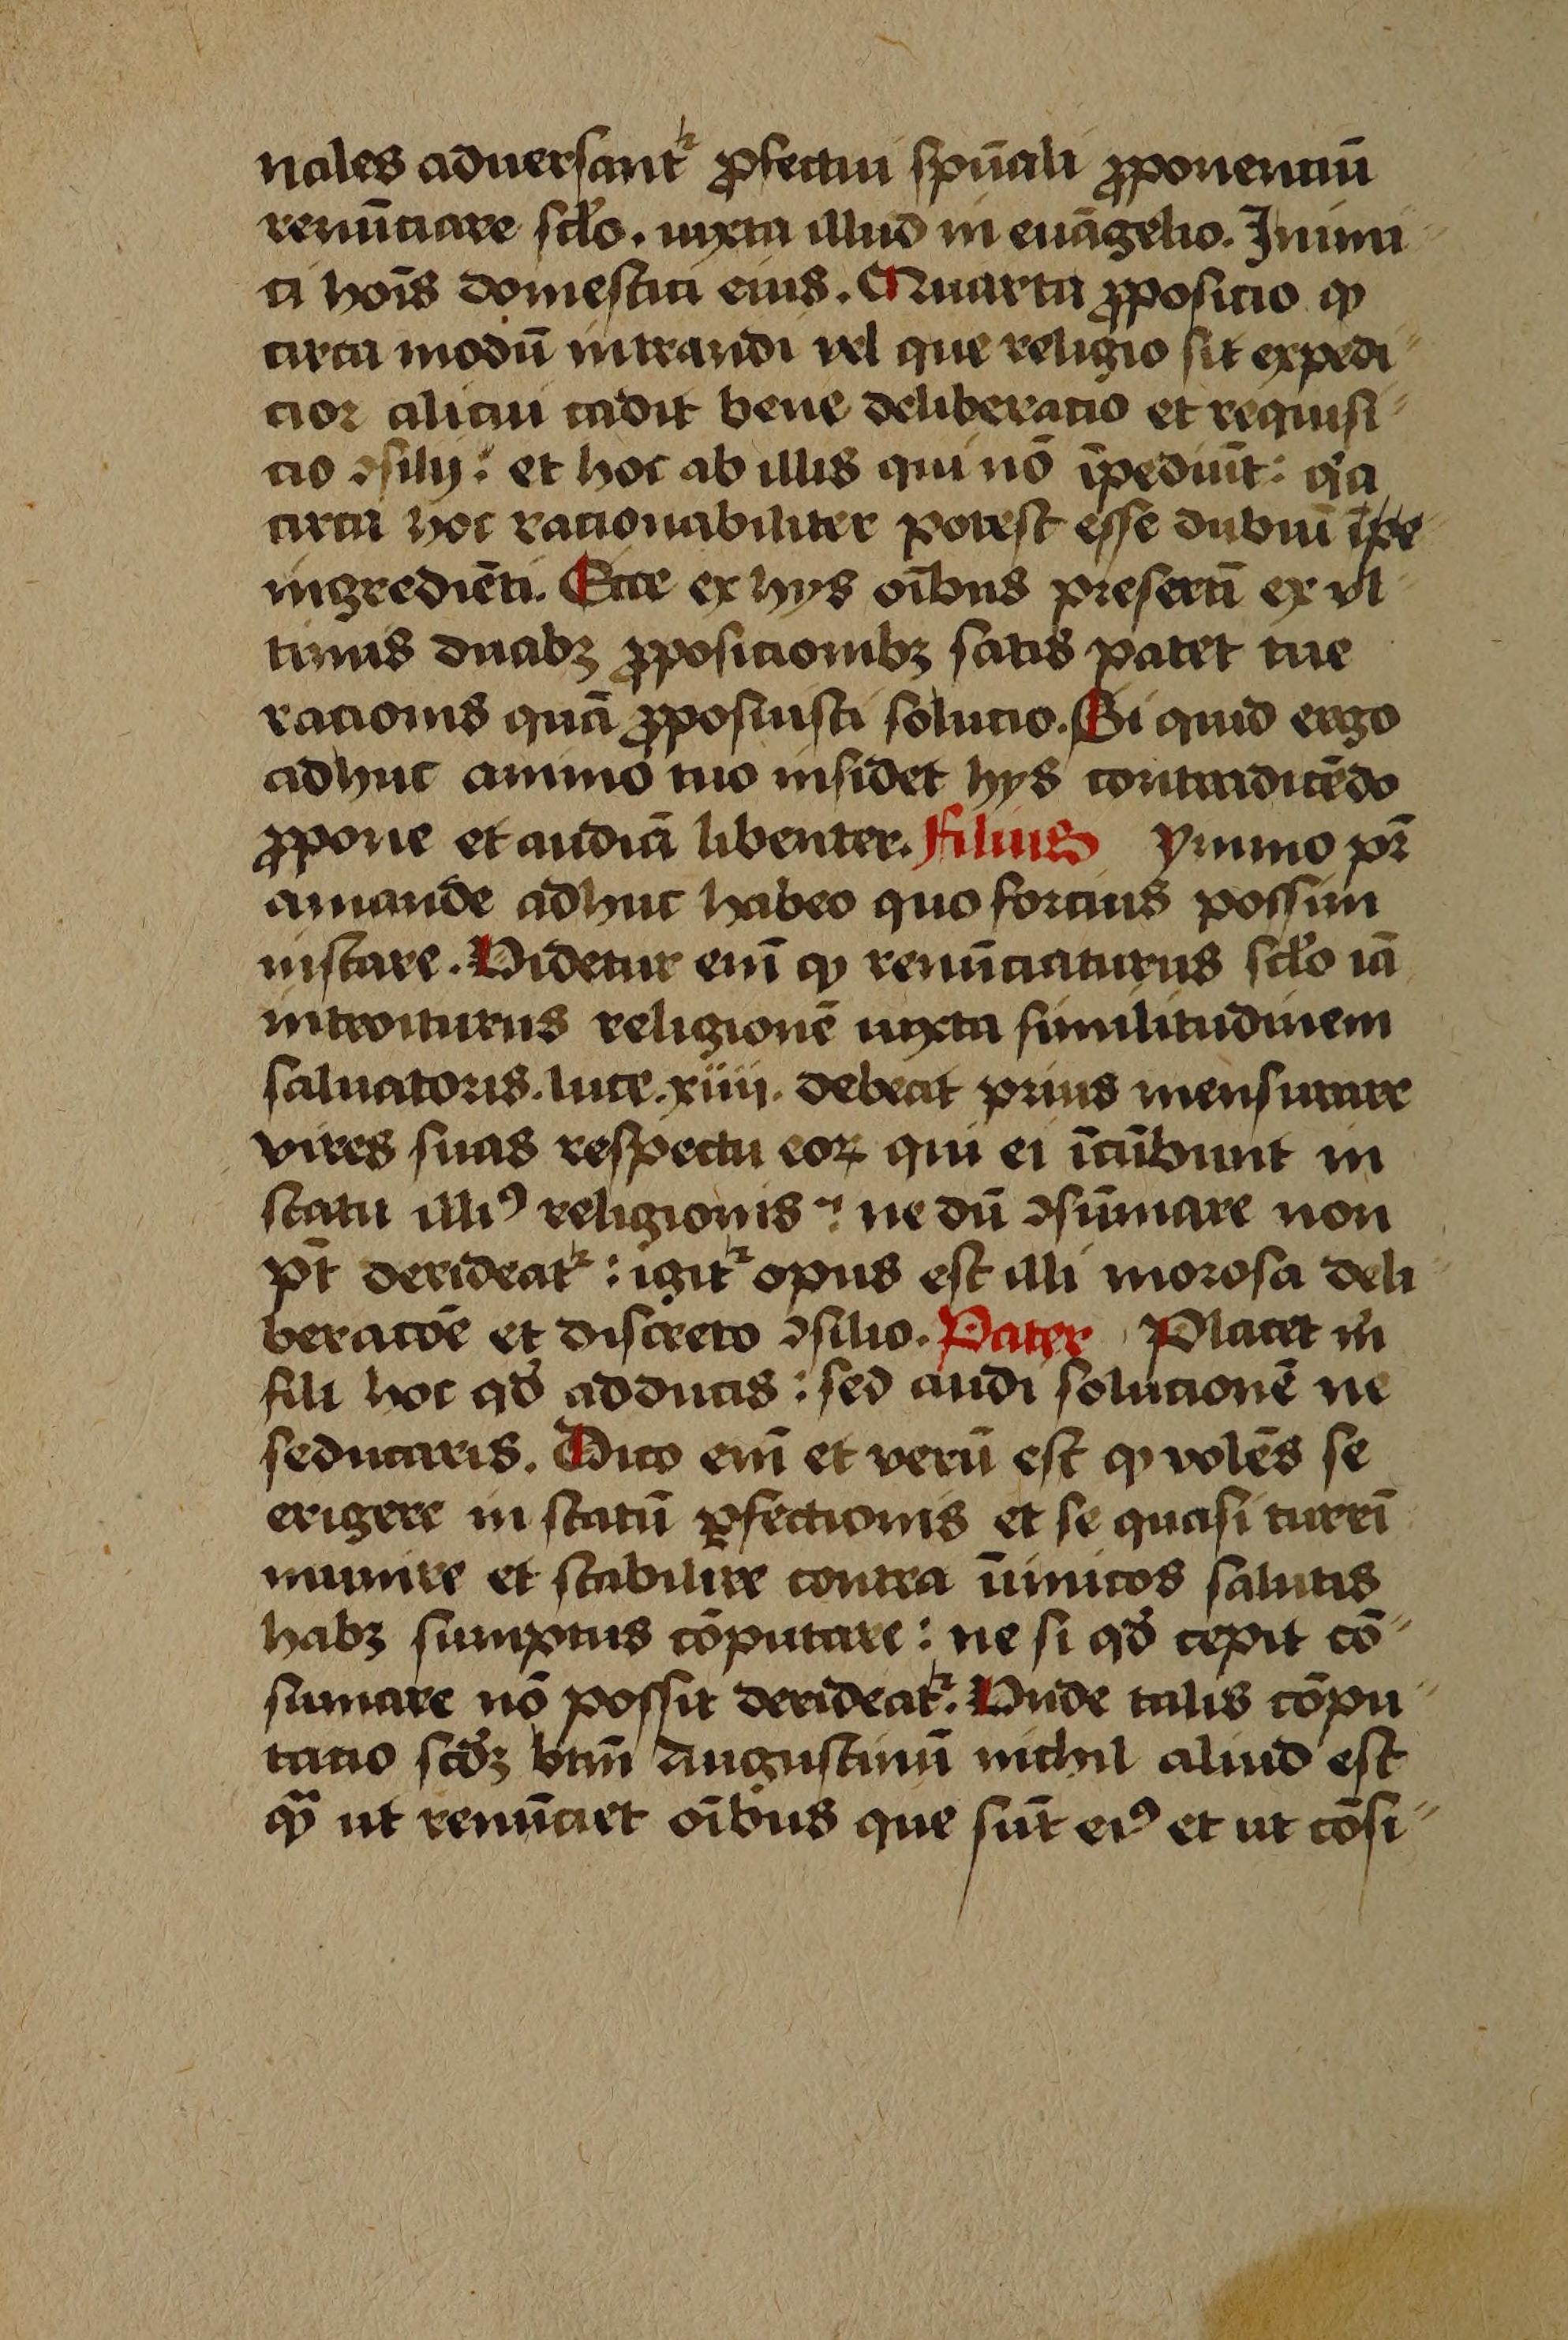 nales aduersantᷣ ꝓfectui spūali ꝓponentiū
renūciare scło. iuxta illud in euāgelio. Inimi
ci hoīs domestici eius. Quarta ꝓposicio ꝙ
circa modū intrandi vel que religio sit expedi
cior alicui cadit bene deliberacio et requisi
cio ꝯsilij: et hoc ab illis qui nō īpediūt: qͥa
circa hoc racionabiliter potest esse dubiū ipͥe
ingrediēti. Ecce ex hys oībus presertī ex vl
timis duabꝫ ꝓposicionibꝫ satis patet tue
racionis quā ꝓposuisti solucio. Si quid ergo
adhuc animo tuo insidet hys contradicēdo
ꝓpone et audiā libenter. Filius Ymmo pr̄
amande adhuc habeo quo forcius possim
instare. Videtur enī ꝙ renūciaturus scło iā
introiturus religionē iuxta similitudinem
saluatoris. luce. xiiii. debeat prius mensurare
vires suas respectu eoꝝ qui ei īcūbunt in
statu illiꝰ religionis: ne dū ꝯsūmare non
pt̄ derideatᷣ: igitᷣ opus est illi morosa deli
beracōe et discreto ꝯsilio. Pater Placet mͥ
fili hoc qd̓ adducis: sed audi solucionē ne
seducaris. Dico enī et verū est ꝙ volēs se
erigere in statū ꝑfectionis et se quasi turrī
munire et stabilire contra īimicos salutis
habꝫ sumptus cōputare: ne si qd̓ cepit cō
sumare nō possit derideatᷣ. Vnde talis cōpu
tacio scd̓ꝫ btm̄ Augustinū nichil aliud est
qͣ̄ ut renūciet oībus que sūt eiꝰ et ut cōsi